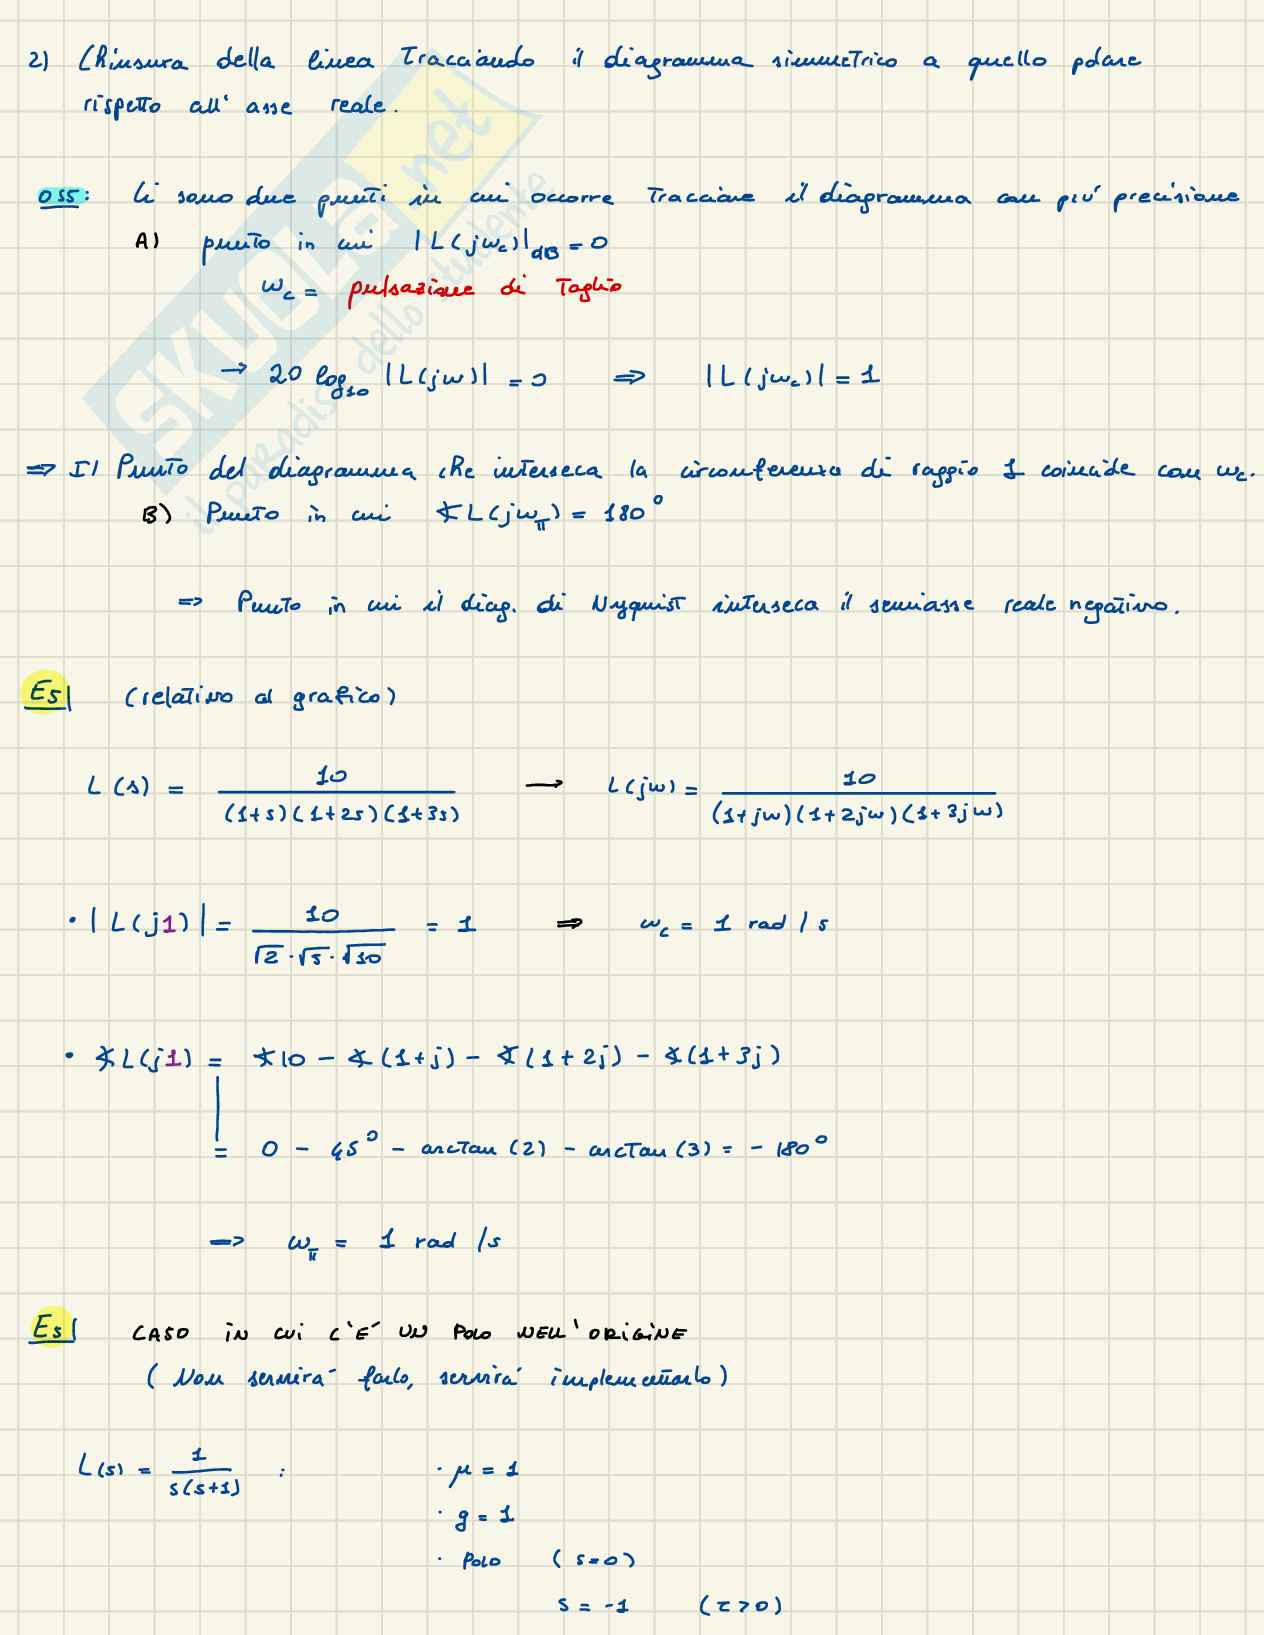 2) Chiusura della linea tracciando il diagramma simmetrico a quello polare
rispetto all' asse reale.
OSS: Ci sono due punti in cui occorre tracciare il diagramma con piú precisione
A) punto in cui |L(jωc)|dB = 0
ωc = pulsazione di taglio
→ 20 log10 |L(jω)| = 0 ⇒ |L(jωc)| = 1
⇒ Il Punto del diagramma che interseca la circonferenza di raggio 1 coincide con ωc.
B) Punto in cui ∡L(jωπ) = 180°
⇒ Punto in cui il diag. di Nyquist interseca il semiasse reale negativo.
Es| (relativo al grafico)
L(s) = 10 / (1+s)(1+2s)(1+3s) → L(jω) = 10 / (1+jω)(1+2jω)(1+3jω)
• |L(j1)| = 10 / √2·√5·√10 = 1 ⇒ ωc = 1 rad/s
• ∡L(j1) = ∡10 - ∡(1+j) - ∡(1+2j) - ∡(1+3j)
= 0 - 45° - arctan(2) - arctan(3) = -180°
⇒ ωπ = 1 rad/s
Es| CASO IN CUI C'E' UN POLO NELL'ORIGINE
(Non servirá farlo, servirá implementarlo)
L(s) = 1 / s(s+1) : · μ = 1
· g = 1
· POLO (s=0)
s = -1 (τ>0)
SKUOLA.net
il paradiso dello studente